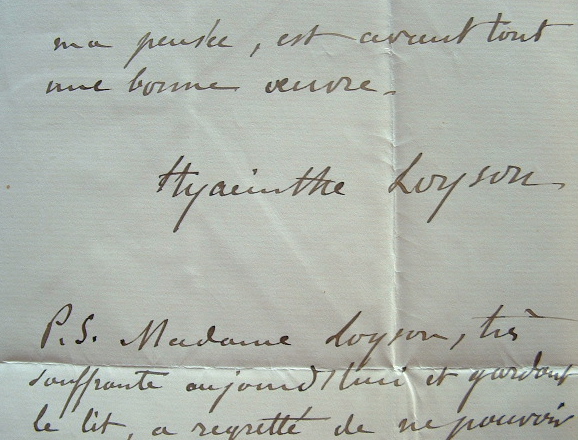 ma pensée, est avant tout
une bonne œuvre.
Hyacinthe Loyson
P.S. Madame Loyson, très
souffrante aujourd'hui et gardant
le lit, a regretté de ne pouvoir